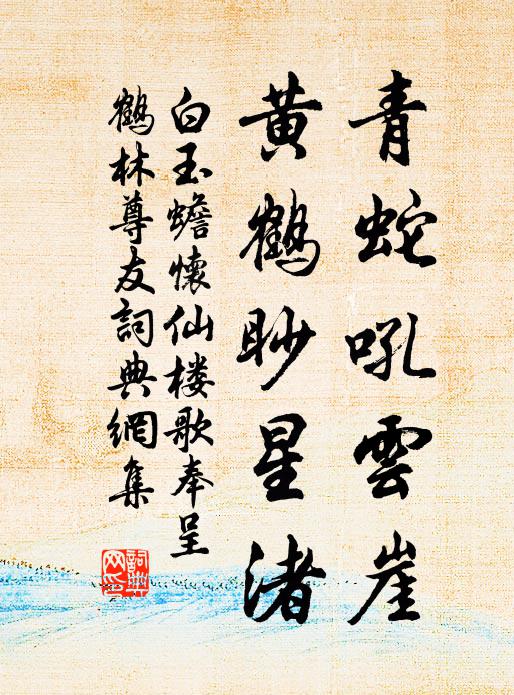 青蛇吼雲崖
黃鶴眇星渚
白玉蟾懷仙楼歌奉呈
鶴林尊友詞典網集